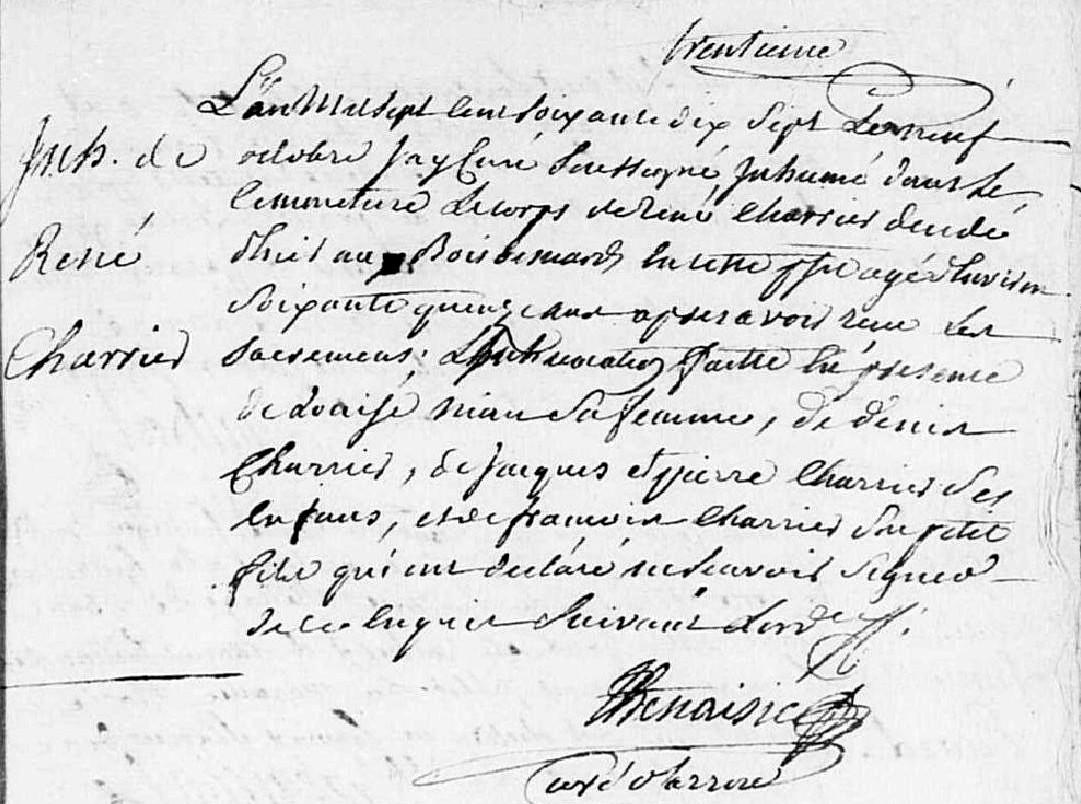 trentieme
L'an Mil sept cent soixante dix sept Le neuf
Inh. de
octobre Jay Curé Soussigné, Inhumé dans Le
cemmetiere Le corps de René Charrier décédé
René
d'hier au Bois bernard En cette psse agé d'Environ
soixante quenze ans apres avoir reçu Les
Charrier
sacremens; L'Inhumation faitte En presence
de Louise sa femme, de denis
Charrier, de Jacques et pierre Charrier Ses
Enfans, et de francois Charrier Son petit
fils qui ont declaré ne Scavoir Signer
de ce Enquis Suivant L'ord
Benaisse
curé